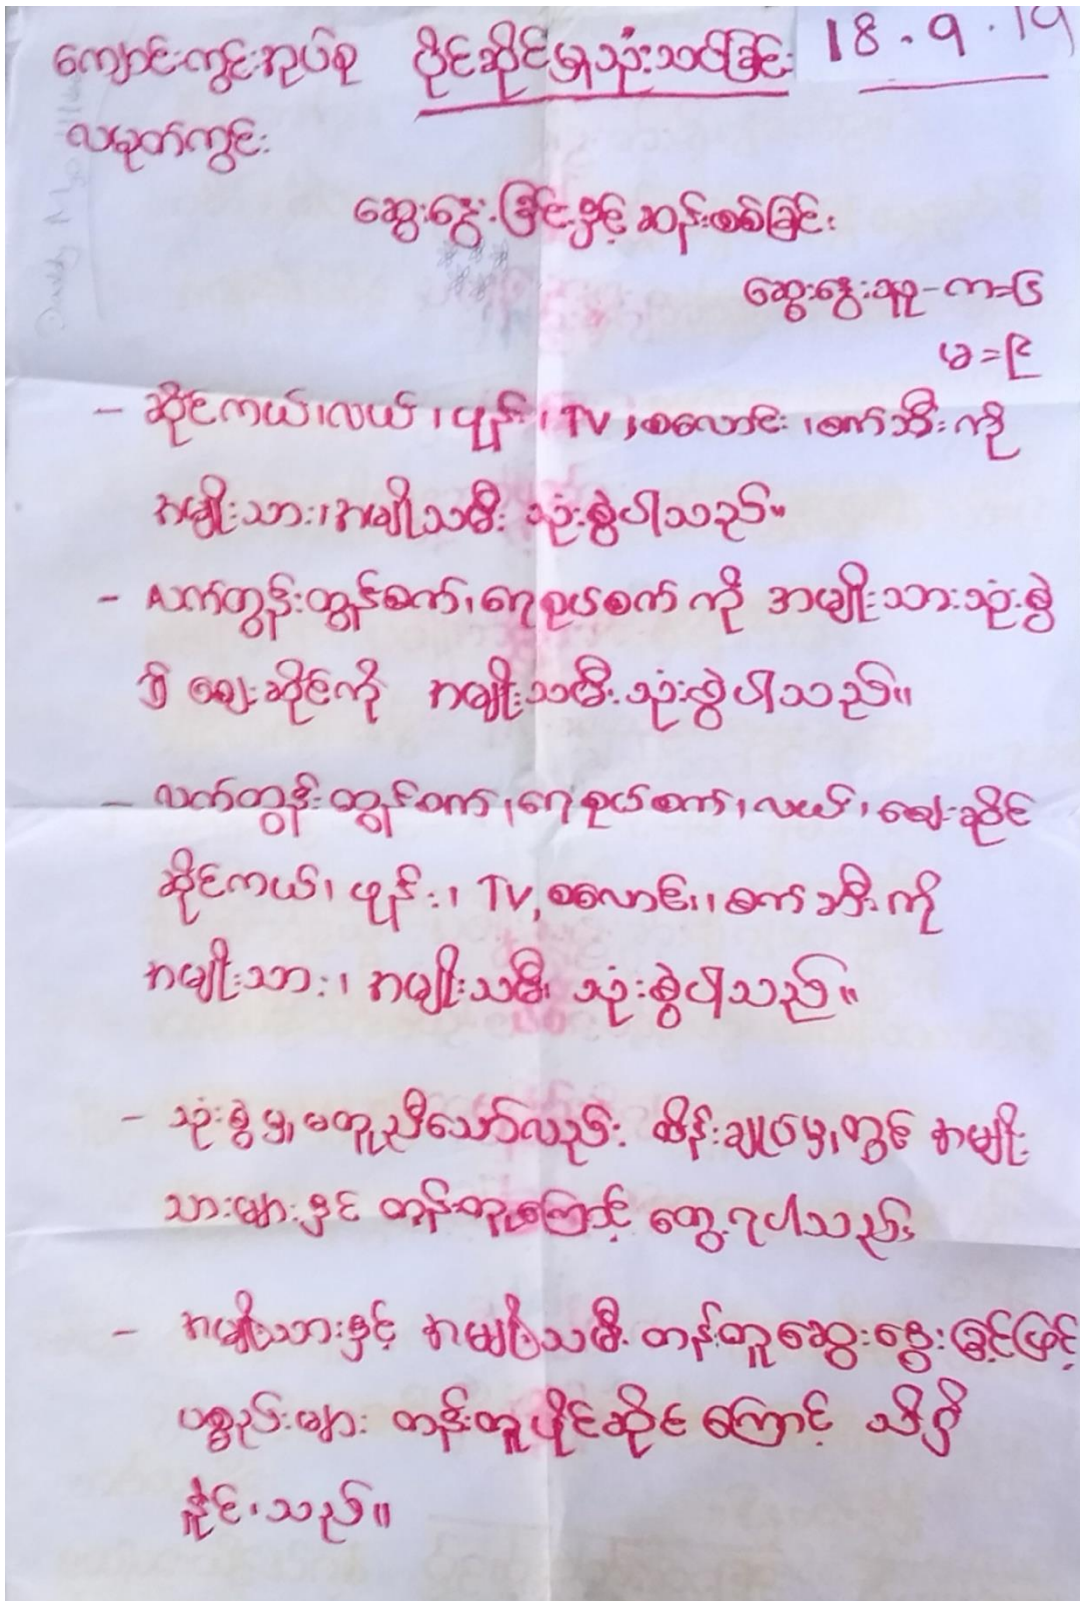 ကျောင်းကွင်းအုပ်စု ပိုင်ဆိုင်မှုသုံးသပ်ခြင်း 18.9.19
လမုတ်ကွင်း
ဆွေးနွေးခြင်းနှင့် ဆန်းစစ်ခြင်း
ဆွေးနွေးသူ - ကျား=၆
မ=၉
- ဆိုင်ကယ်၊လယ်၊ဖုန်း၊TV၊စလောင်း၊စက်ဘီးကို
အမျိုးသား၊အမျိုးသမီး သုံးစွဲပါသည်။
- လက်တွန်းထွန်စက်၊ရေစုပ်စက် ကို အမျိုးသားသုံးစွဲ
၍ ဈေးဆိုင်ကို အမျိုးသမီး သုံးစွဲပါသည်။
- လက်တွန်းထွန်စက်၊ရေစုပ်စက်၊လယ်၊ဈေးဆိုင်
ဆိုင်ကယ်၊ ဖုန်း၊ TV, စလောင်း၊ စက်ဘီးကို
အမျိုးသား၊ အမျိုးသမီး သုံးစွဲပါသည်။
- သုံးစွဲမှု မတူညီသော်လည်း ထိန်းချုပ်မှုတွင် အမျိုး
သားများနှင့် တန်းတူကြောင့် တွေ့ရပါသည်။
- အမျိုးသားနှင့် အမျိုးသမီး တန်းတူဆွေးနွေးခြင်းဖြင့်
ပစ္စည်းများ တန်းတူပိုင်ဆိုင်ကြောင့် သိရှိ
နိုင်သည်။